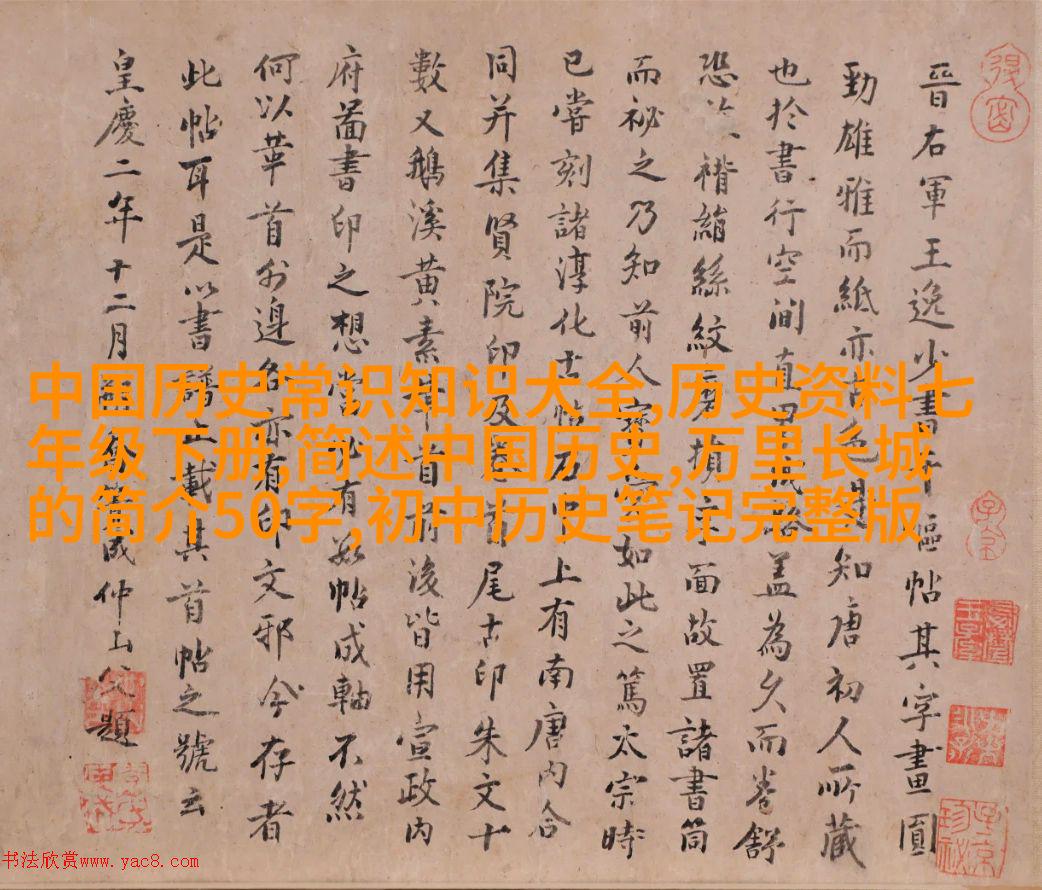 中国历史常识知识大全,历史资料七
年级下册,简述中国历史,万里长城
的简介50字,初中历史笔记完整版
晉右軍王逸少書干嘔帖其字畫圓
勁雄雅而紙亦古色知唐初人所藏
也於書行空間直界蓋為久而卷舒
恐褙縜絲紋磨損字面故置諸書筒
而祕之乃知前人寶如此之篤太宗時
已嘗刻諸淳化古帖上有南唐內合
同并集賢院印及卷首尾古印朱文十
數又鵝溪黃素首前後皆用宣政內
府圖書印之想當有數帖成軸不然
何以華首外邊名亦有印文邪今存者
此帖耳是以書譜止載其首帖之號云
皇慶二年十二月成仲山父題
书法欣赏www.yac8.com